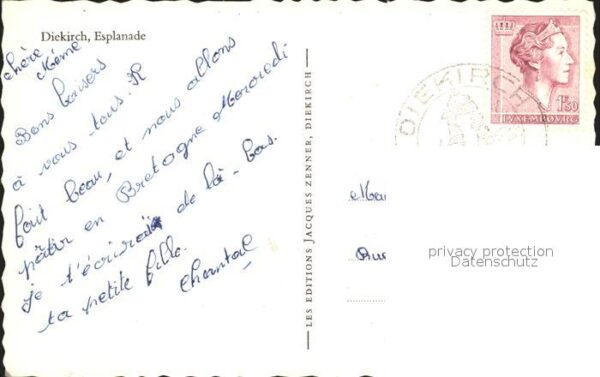 Diekirch, Esplanade
chère Mémé
Bons baisers
à vous tous. Il
fait beau, et nous allons
partir en Bretagne Mercredi
je t'écrirai de là-bas.
ta petite fille.
Chantal
LES EDITIONS JACQUES ZENNER, DIEKIRCH
DIEKIRCH
1F50
LUXEMBOURG
privacy protection
Datenschutz